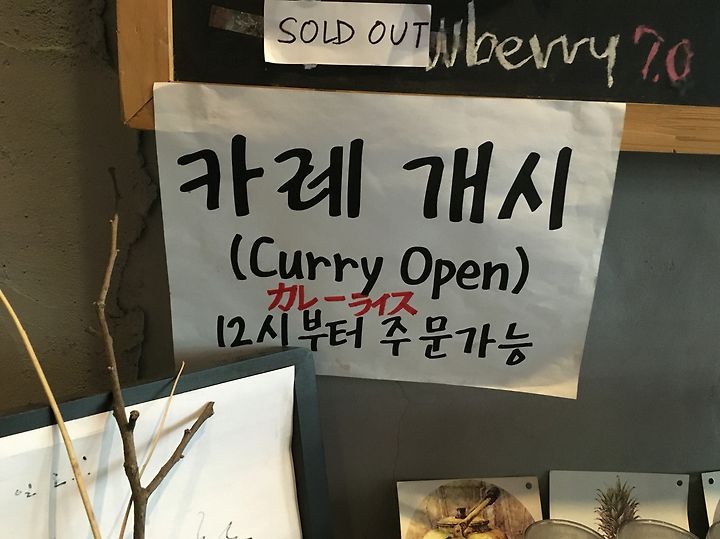 SOLD OUT wberry 7.0
카레 개시
(Curry Open)
カレーライス
12시부터 주문가능